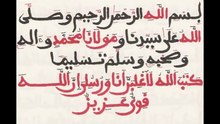 بسم الله الرحمن الرحيم وصلى
الله على سيدنا ومولانا محمد وءاله
وصحبه وسلم تسليما
كتب الله لأغلبن أنا ورسلي إن الله
قوي عزيز